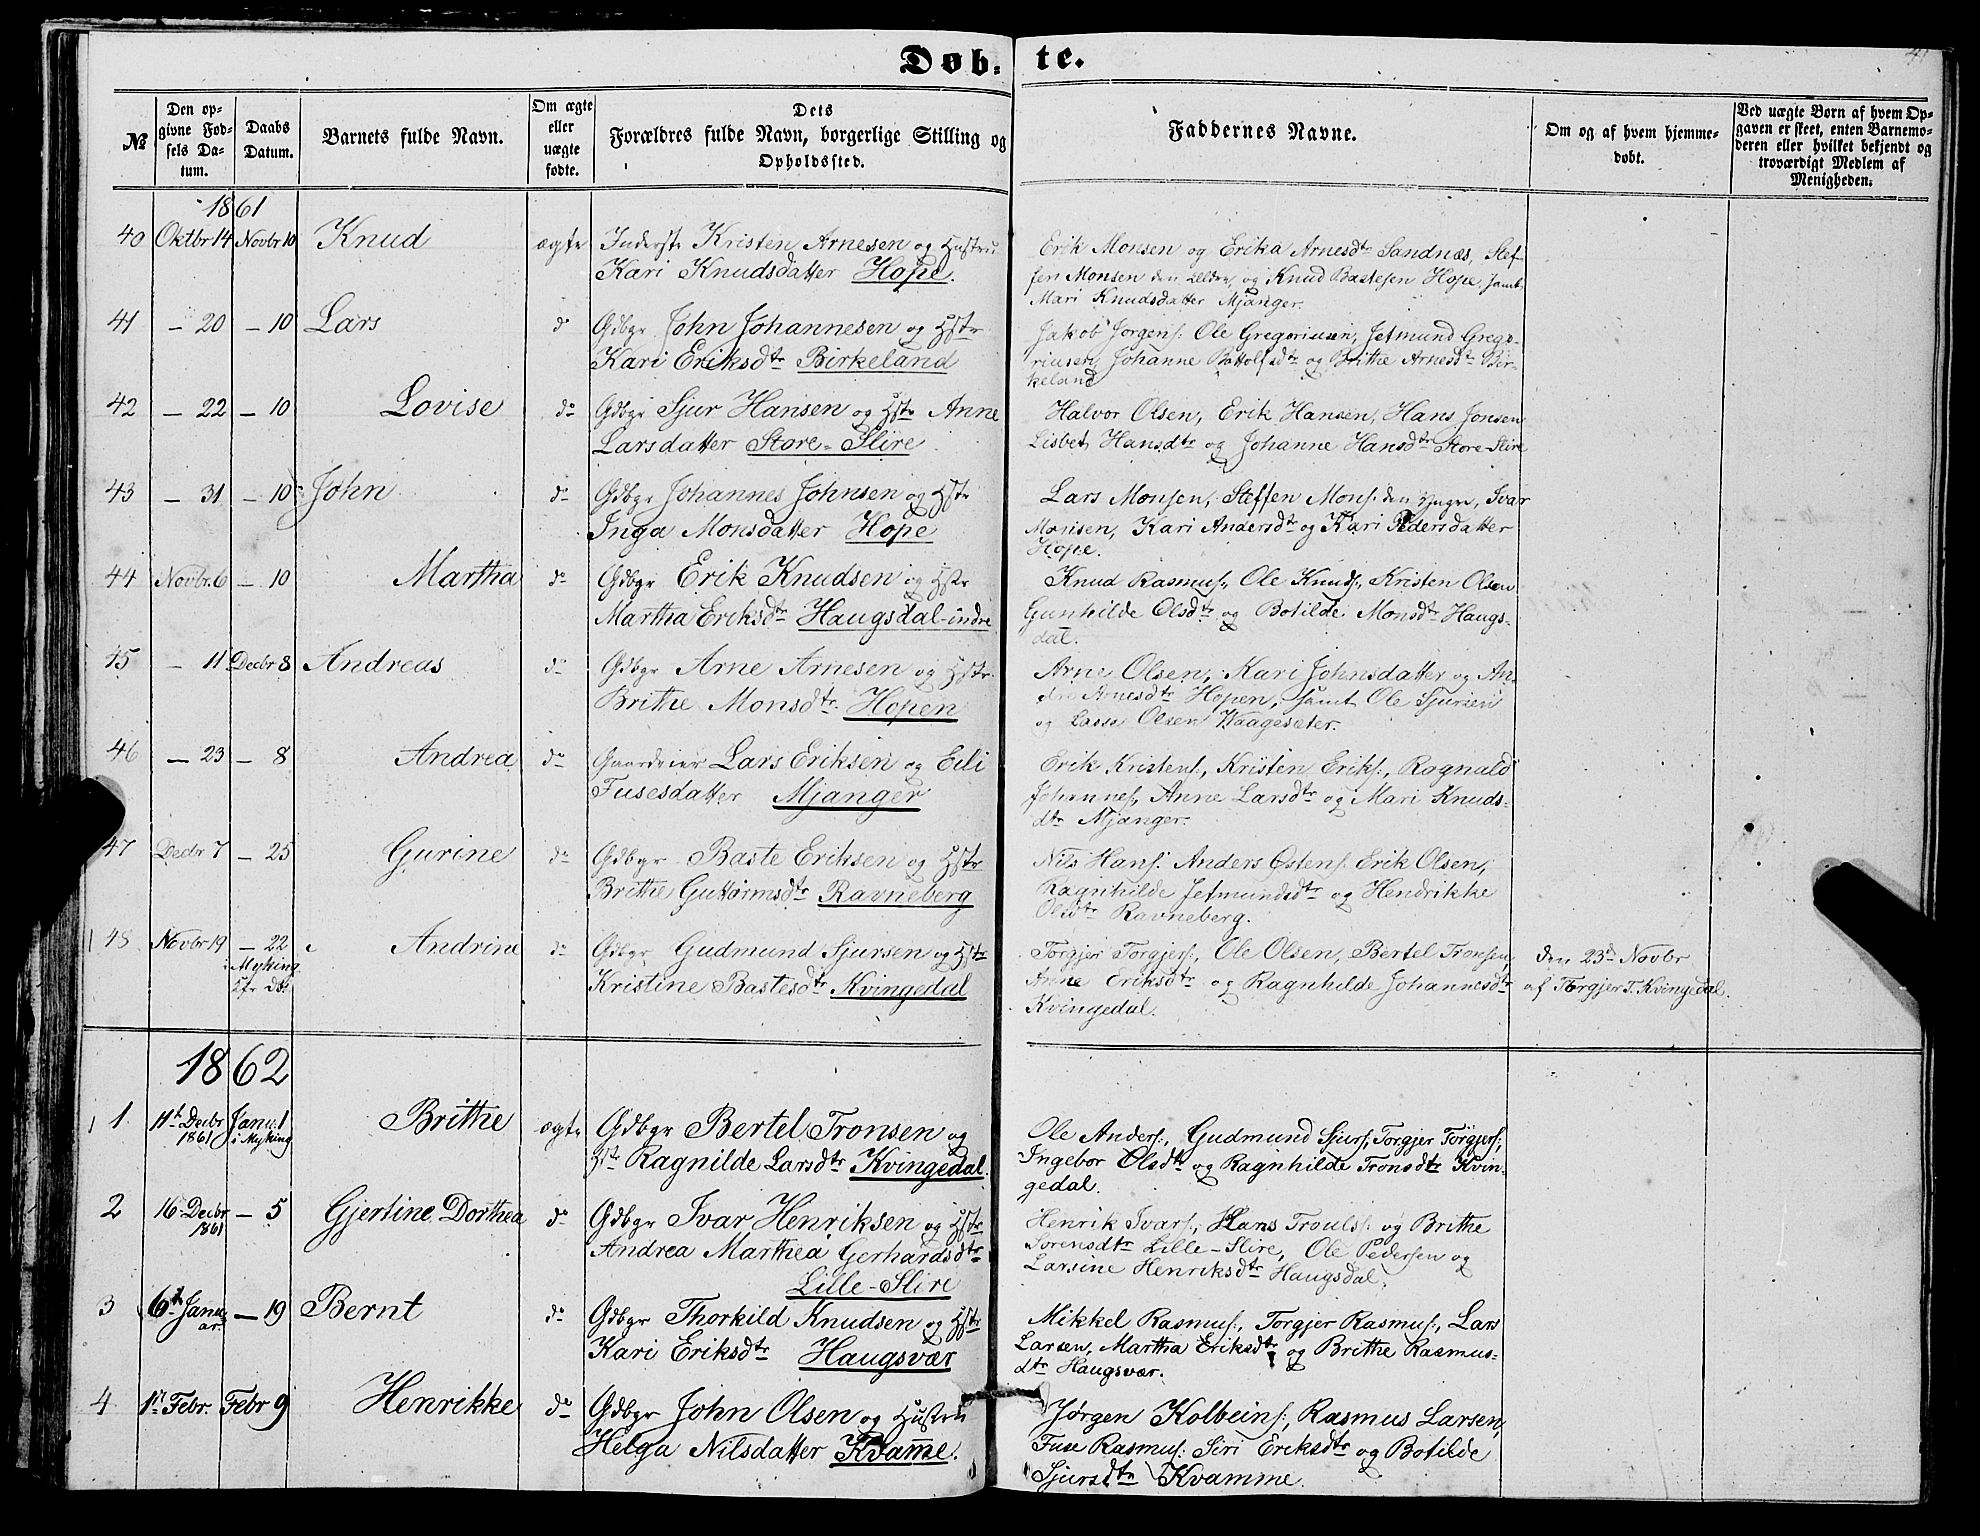 Døb- te.
41
№
Den opgivne Fødsels Datum.
Daabs Datum.
Barnets fulde Navn.
Om ægte eller uægte fødte.
Dets Forældres fulde Navn, borgerlige Stilling og Opholdssted.
Faddernes Navne.
Om og af hvem hjemmedøbt.
Ved uægte Børn af hvem Opgaven er skeet, enten Barnemoderen eller hvilket bekjendt og troværdigt Medlem af Menigheden.
1861
40 Oktbr 14 Novbr 10 Knud ægte Inderste Kristen Arnesen og Hustru
Kari Knudsdatter Hope.
Erik Monsen og Erika Arnesdtr Sandnæs, Stef-
fen Monsen den Eldre, og Knud Bastesen Hope, samt
Mari Knudsdatter Mjanger.
41 – 20 – 10 Lars do Gdbgr John Johannesen og Hstr
Kari Eriksdtr Birkeland
Jakob Jørgens: Ole Gregoriusen, Jetmund Grego-
riusen, Johanne Bottolfsdtr og Brithe Arnesdtr Bir-
keland
42 – 22 – 10 Lovise do Gdbgr Sjur Hansen og Hstr Anne
Larsdatter Store-Slire
Halvor Olsen, Erik Hansen, Hans Jonsen
Lisbet Hansdtr og Johanne Hansdtr Store-Slire
43 – 31 – 10 John do Gdbgr Johannes Johnsen og Hstr
Inga Monsdatter Hope
Lars Monsen, Steffen Mons: den Yngre, Ivar
Monsen, Kari Andersdtr og Kari Pedersdatter
Hope.
44 Novbr. 6 – 10 Martha do Gdbgr Erik Knudsen og Hstr
Martha Eriksdtr Haugsdal-indre
Knud Rasmus:, Ole Knuds:, Kristen Olsen
Gunhilde Olsdtr og Botilde Monsdtr Haugs-
dal.
45 – 11 Decbr 8 Andreas do Gdbgr Arne Arnesen og Hstr
Brithe Monsdtr. Hopen
Arne Olsen, Kari Johnsdatter og An-
dre Arnesdtr Hopen, samt Ole Sjursen
og Lasse Olsen Waagesæter.
46 – 23 – 8 Andrea do Gaardeier Lars Eriksen og Eili
Fusesdatter Mjanger
Erik Kristens:, Kristen Eriks:, Ragnald
Johannes:, Anne Larsdtr og Mari Knuds-
dtr Mjanger.
47 Decbr 7 – 25 Gurine do Gdbgr Baste Eriksen og Hstr
Brithe Guttormsdtr Ravneberg
Nils Hans: Anders Østens: Erik Olsen,
Ragnhilde Jetmundsdtr og Hendrikke
Olsdtr Ravneberg.
48 Novbr 19 – 22 i Myking Andrine do Gdbgr Gudmund Sjursen og Hstr
Kristine Bastesdtr Kvingedal
Torgjer Torgjers:, Ole Olsen, Bertel Tronsen,
Anne Eriksdtr og Ragnhilde Johannesdtr
Kvingedal.
den 23de Novbr
af Torgjer T. Kvingedal.
1862
1. 11te Decbr 1861 Janu. 1 i Myking Brithe ægte Gdbgr Bertel Tronsen og
Hstr Ragnilde Larsdtr Kvingedal.
Ole Anders:, Gudmund Sjurs:, Torgjer Torgjers:,
Ingebor Olsdtr og Ragnhilde Tronsdtr Kvin-
gedal.
2 16 Decbr 1861 – 5 Gjertine Dorthea do Gdbgr Ivar Henriksen og Hstr
Andrea Marthea Gerhardsdtr
Lille-Slire
Henrik Ivars:, Hans Trouls: og Brithe
Sorensdtr Lille-Slire, Ole Pedersen og
Larsine Henriksdtr Haugsdal.
3 6te Januar – 19 Bernt do Gdbgr Thorkild Knudsen og Hstr
Kari Eriksdtr Haugsvær
Mikkel Rasmus:, Torgjer Rasmus:, Lars
Larsen, Martha Eriksdtr og Brithe Rasmus-
dtr Haugsvær.
4 1ste Febr. Febr 9 Henrikke do Gdbgr John Olsen og Hustru
Helga Nilsdatter Kvamme.
Jørgen Kolbeins:, Rasmus Larsen,
Fuse Rasmus: Siri Eriksdtr og Botilde
Sjursdtr Kvamme.